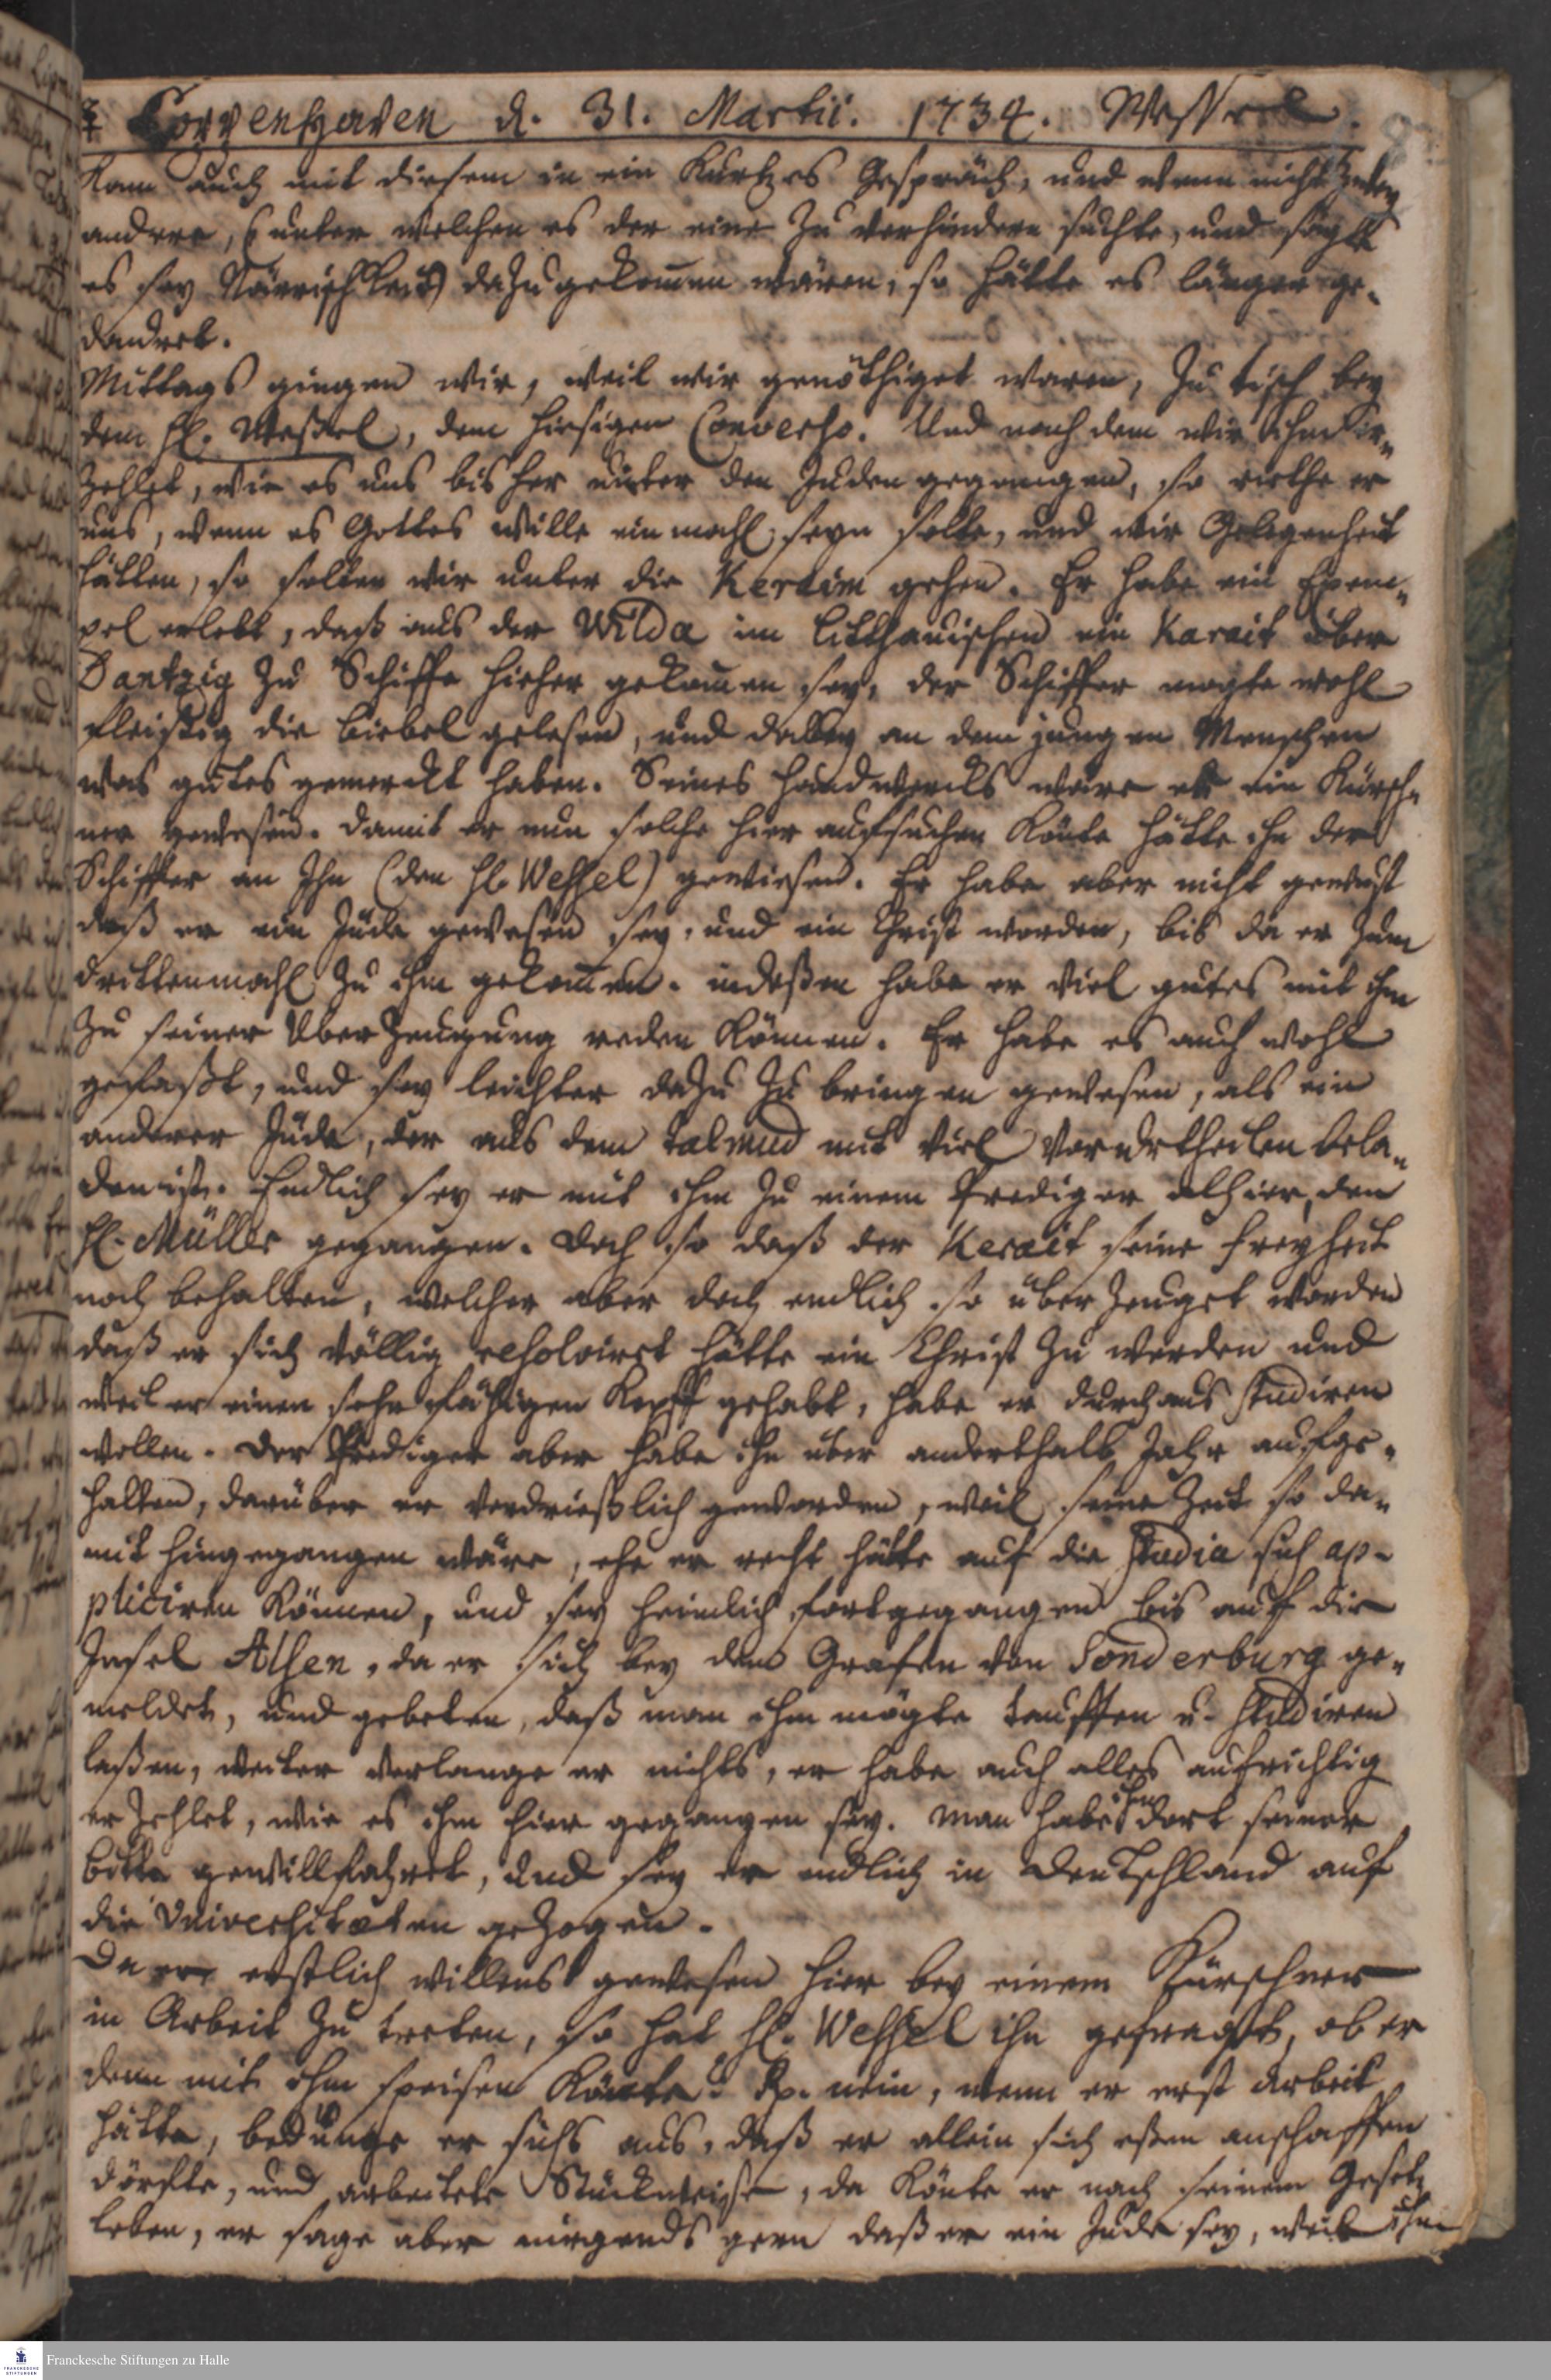 ☿ Coppenhaven d. 31. Martii. 1734. Wessel.
kam auch mit diesem in ein kurtzes Gespräch, und wenn nicht
andere, (unter welchen es der eine zu verhindern suchte, und sagte
es sey Närrischkeit) dazu gekom̄en wären, so hätte es länger ge-
dauret.
Mittags gingen wir, weil wir genöthiget waren, zu tisch bey
dem H. Weßel, dem hiesigen Converso. Und nach dem wir ihm er-
zehlet, wie es uns bisher unter den Juden gegangen, so riethe er
uns, wenn es Gottes wille einmahl seyn solte, und wir Gelegenheit
hätten, so solten wir unter die Keraim gehen. Er habe ein Exem-
pel erlebt, daß aus der Wilda im Litthauischen ein Karait über
Dantzig zu Schiffe hieher gekom̄en sey, der Schiffer mogte wohl
fleißig die Biebel gelesen, und dabey an dem jungen Menschen
was gutes gemerckt haben. Seines handwercks wäre er ein Kürsch-
ner gewesen. Damit er nun solche hier aufsuchen könte hätte ihn der
Schiffer an Ihn (den H. Wessel) gewiesen. Er habe aber nicht gewust
daß er ein Jude gewesen sey, und ein Christ worden, bis da er zum
drittenmahl zu ihm gekom̄en. indeßen habe er viel gutes mit ihm
zu seiner Uberzeugung reden können. Er habe es auch wohl
gefaßt, und sey leichter dazu zu bringen gewesen, als ein
anderer Jude, der aus dem Talmud mit viel Vorurtheilen bela-
den ist. Endlich sey er mit ihm zu einem Prediger alhier, den
H. Müller gegangen. Doch so daß der Kerait seine Freyheit
noch behalten, welcher aber doch endlich so überzeuget worden
daß er sich völlig resolviret hätte ein Christ zu werden und
weil er einen sehr fähigen Kopff gehabt, habe er durchaus studiren
wollen. Der Prediger aber habe ihn über anderthalb Jahr aufge-
halten, darüber er verdrießlich geworden, weil seine Zeit so da-
mit hingegangen wäre, ehe er recht hätte auf die Studia sich ap-
pliciren können, und sey heimlich fortgegangen bis auf die
Insel Alsen, da er sich bey dem Grafen von Sonderburg ge-
meldet, und gebeten, daß man ihn mögte tauffen u. studiren
laßen, weiter verlange er nichts, er habe auch alles aufrichtig
erzehlet, wie es ihm hier gegangen sey. Man habe ihm dort seiner
bitte gewillfahret, und sey er endlich in Deutschland auf
die Universitæten gezogen.
Da er erstlich willens gewesen hier bey einem Kürschner
in Arbeit zu treten, so hat H. Wessel ihn gefragt, ob er
denn mit ihm speisen könte? Rp. nein, wenn er erst arbeit
hätte, bedünge er sichs aus, daß er allein sich eßen anschaffen
dörfte, und arbeitete Stückweise, da könte er nach seinem Gesetz
leben, er sage aber nirgends gern daß er ein Jude sey, weil ihm
Franckesche Stiftungen zu Halle